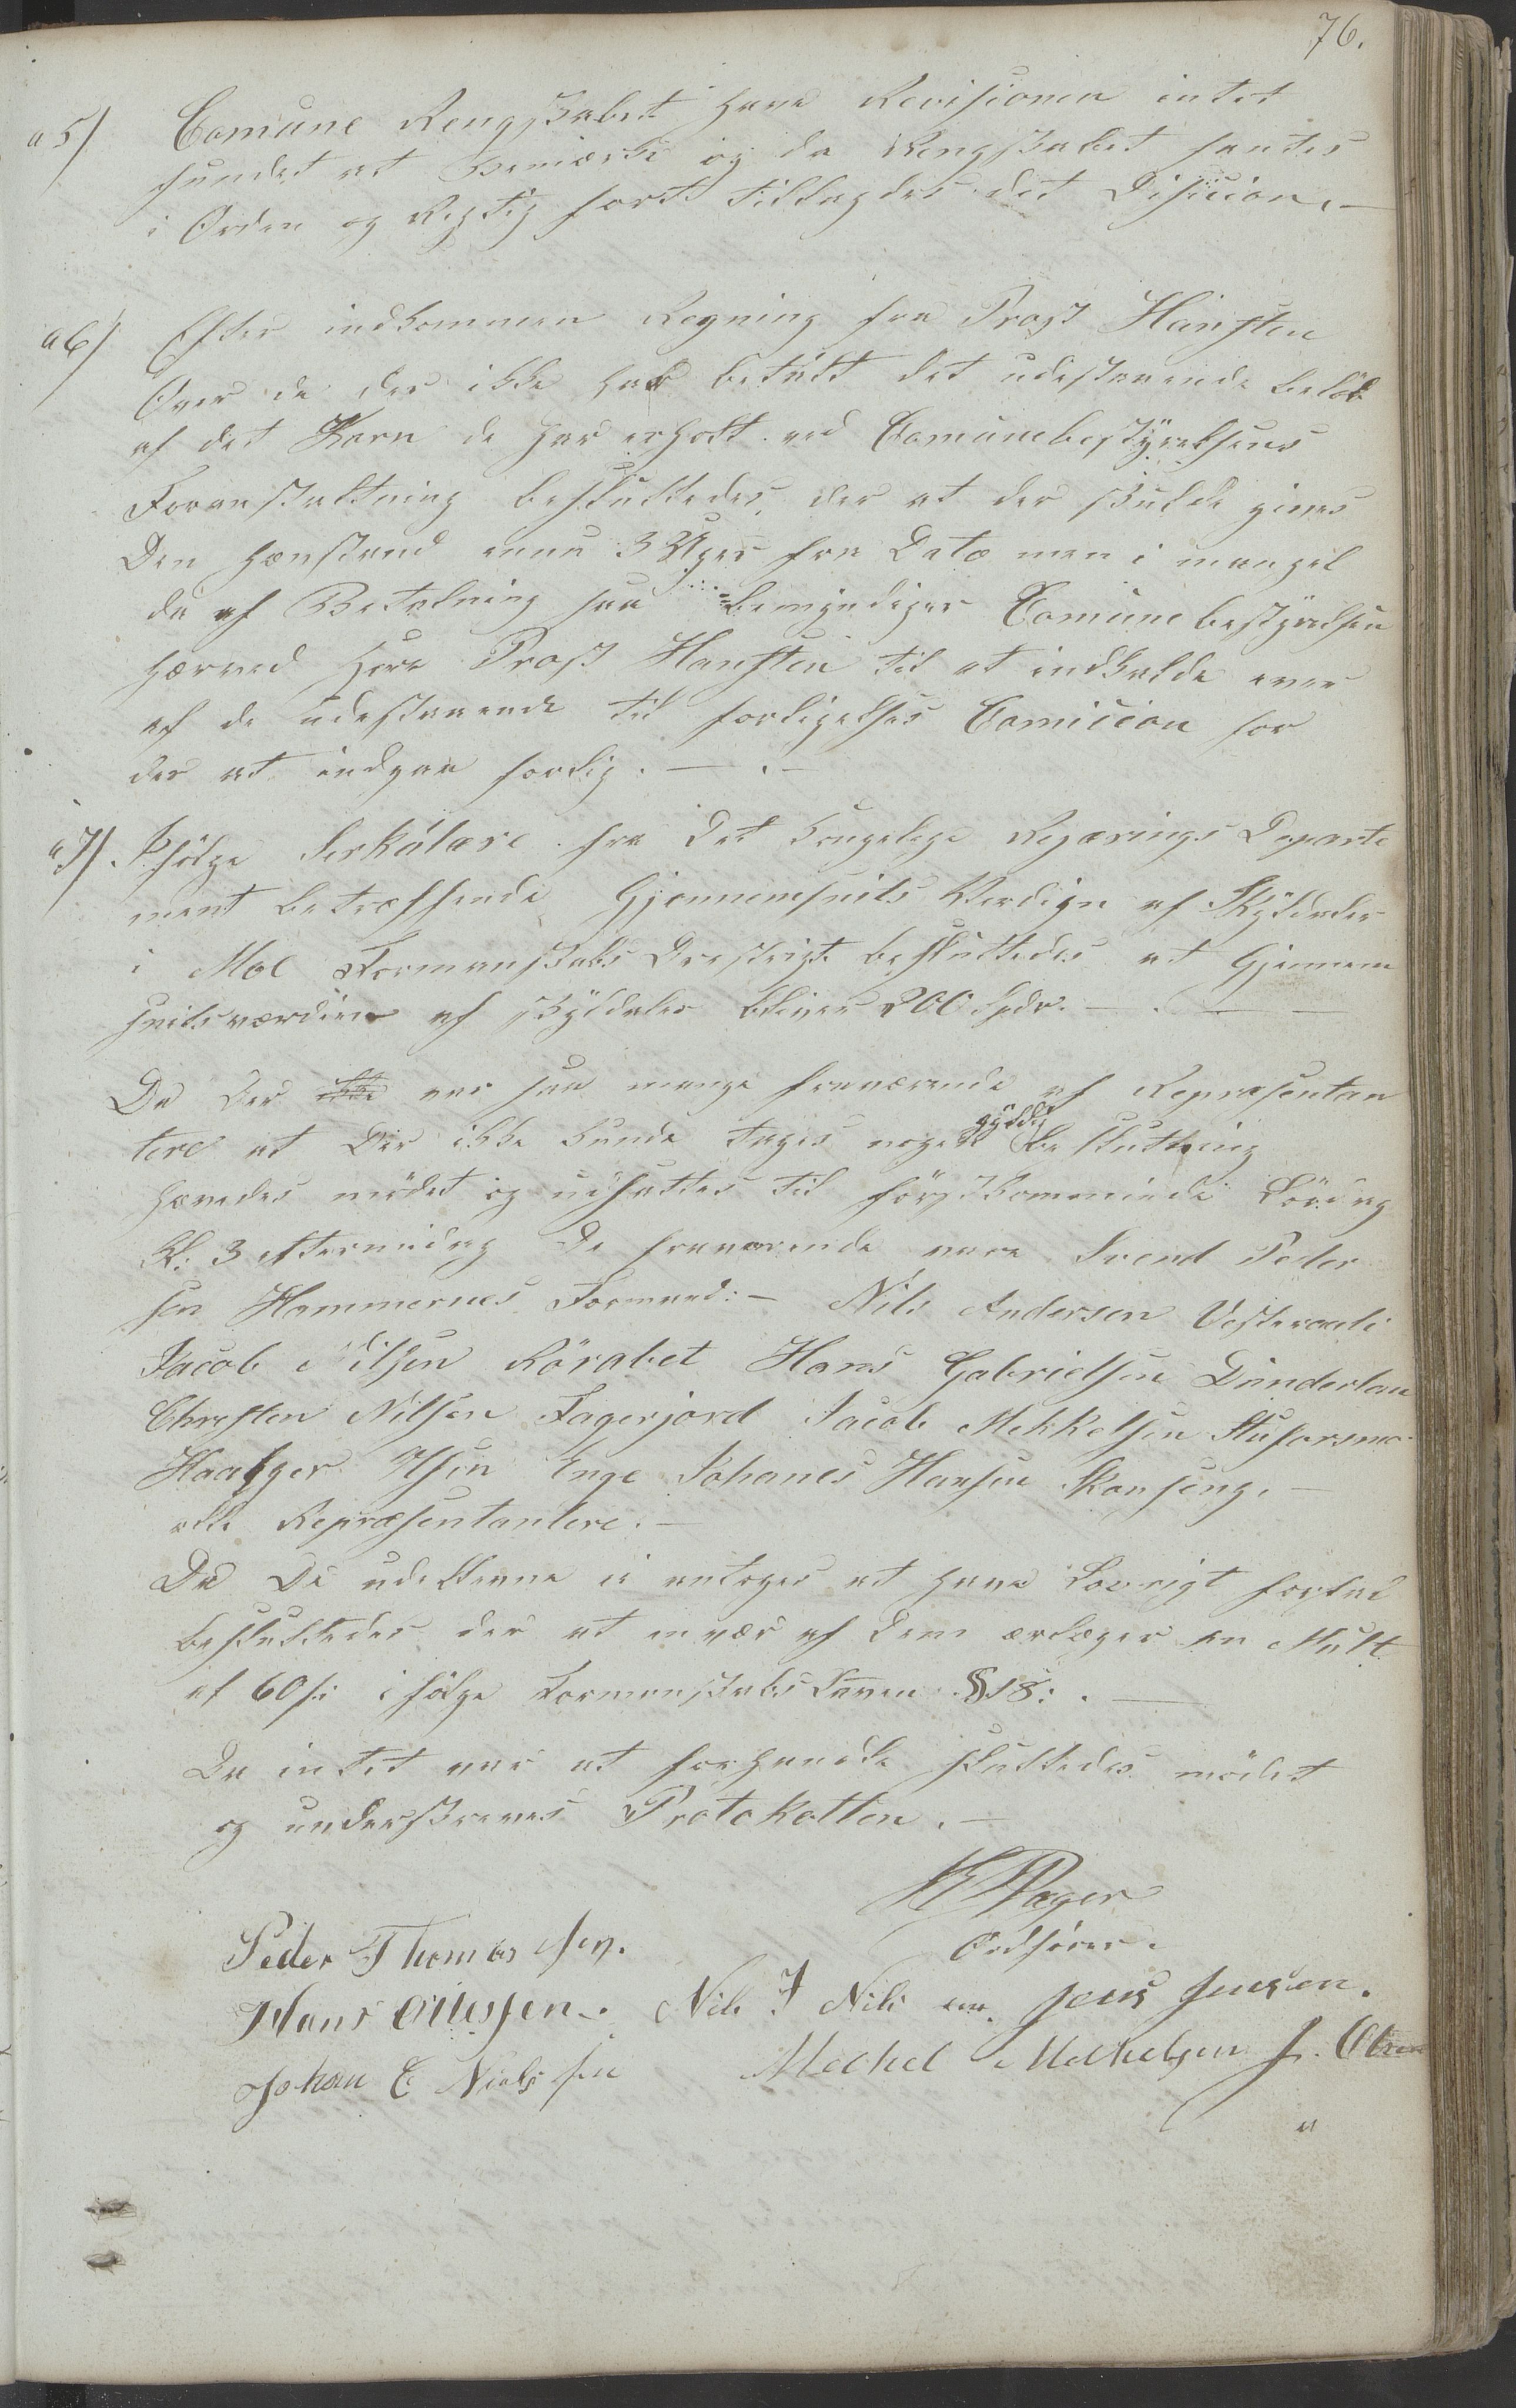 76.
a 5/ Comune Rengskabet have Revisionen intet
fundet at Bemærke og da Rengskabet fantes
i Orden og Rigtig fort tillagdes det Disision. —
a 6/ Efter indkommen Regning fra Prost Hansten
Over de der ikke har betalt det udestaaende beløb
af det Korn de har erholt ved Comunebestyrelsens
Foranstaltning besluttedes der at der skulde gives
Den henstand ennu 3 Uger fra Dato men i mangel
da af Betalning saa bemyndiges Comunebestyrelsen
herved Herr Prost Hansten til at indkalde enver
af de udestaaende til forligelses Comision for
der at indgaa forlig. — . —
a 7/ Ifølge Serkulære fra Det kongelige Regjærings Departe
ment betræffende Gjennemsnits Værdien af Skyldaler
i Moe Formanskabs Drestrigt besluttedes at Gjennem
snitsværdien af skyldaler bliver 200 Spdr. — . — —
Da der ikke var saa mange fraværende af Repræsentan
tere at Der ikke kunde tages noget gyldig beslutning
hævedes mødet og udsattes til førstkommende Lørdag
Kl: 3 ettermidag De fraværende vare Svend Peder
sen Hammernes Formand: — Nils Andersen Vesteraali
Jacob Nilsen Rørabet Hans Gabrielsen Dunderlan
Christen Nilsen Fagerjord Jacob Mekkelsen Stuforsmo
Haagger Olsen Enge Johanes Hansen Skonseng. —
alle Repræsentantere. —
Da De udeblevne ei antoges at have Lovrigt forfal
besluttedes der at enver af dem erlæger en Mult
af 60 s: i følge Formanskabs Loven § 18: . —
Da intet var at forhandle sluttedes mødet
og underskreves Protokollen. —
Peder Thomassen.
Ordfører.
Hans Nilssen. Nils J Nilsen. Jens Jensen.
Johan E Nielssen Mechel Mechelsen J. Olsen